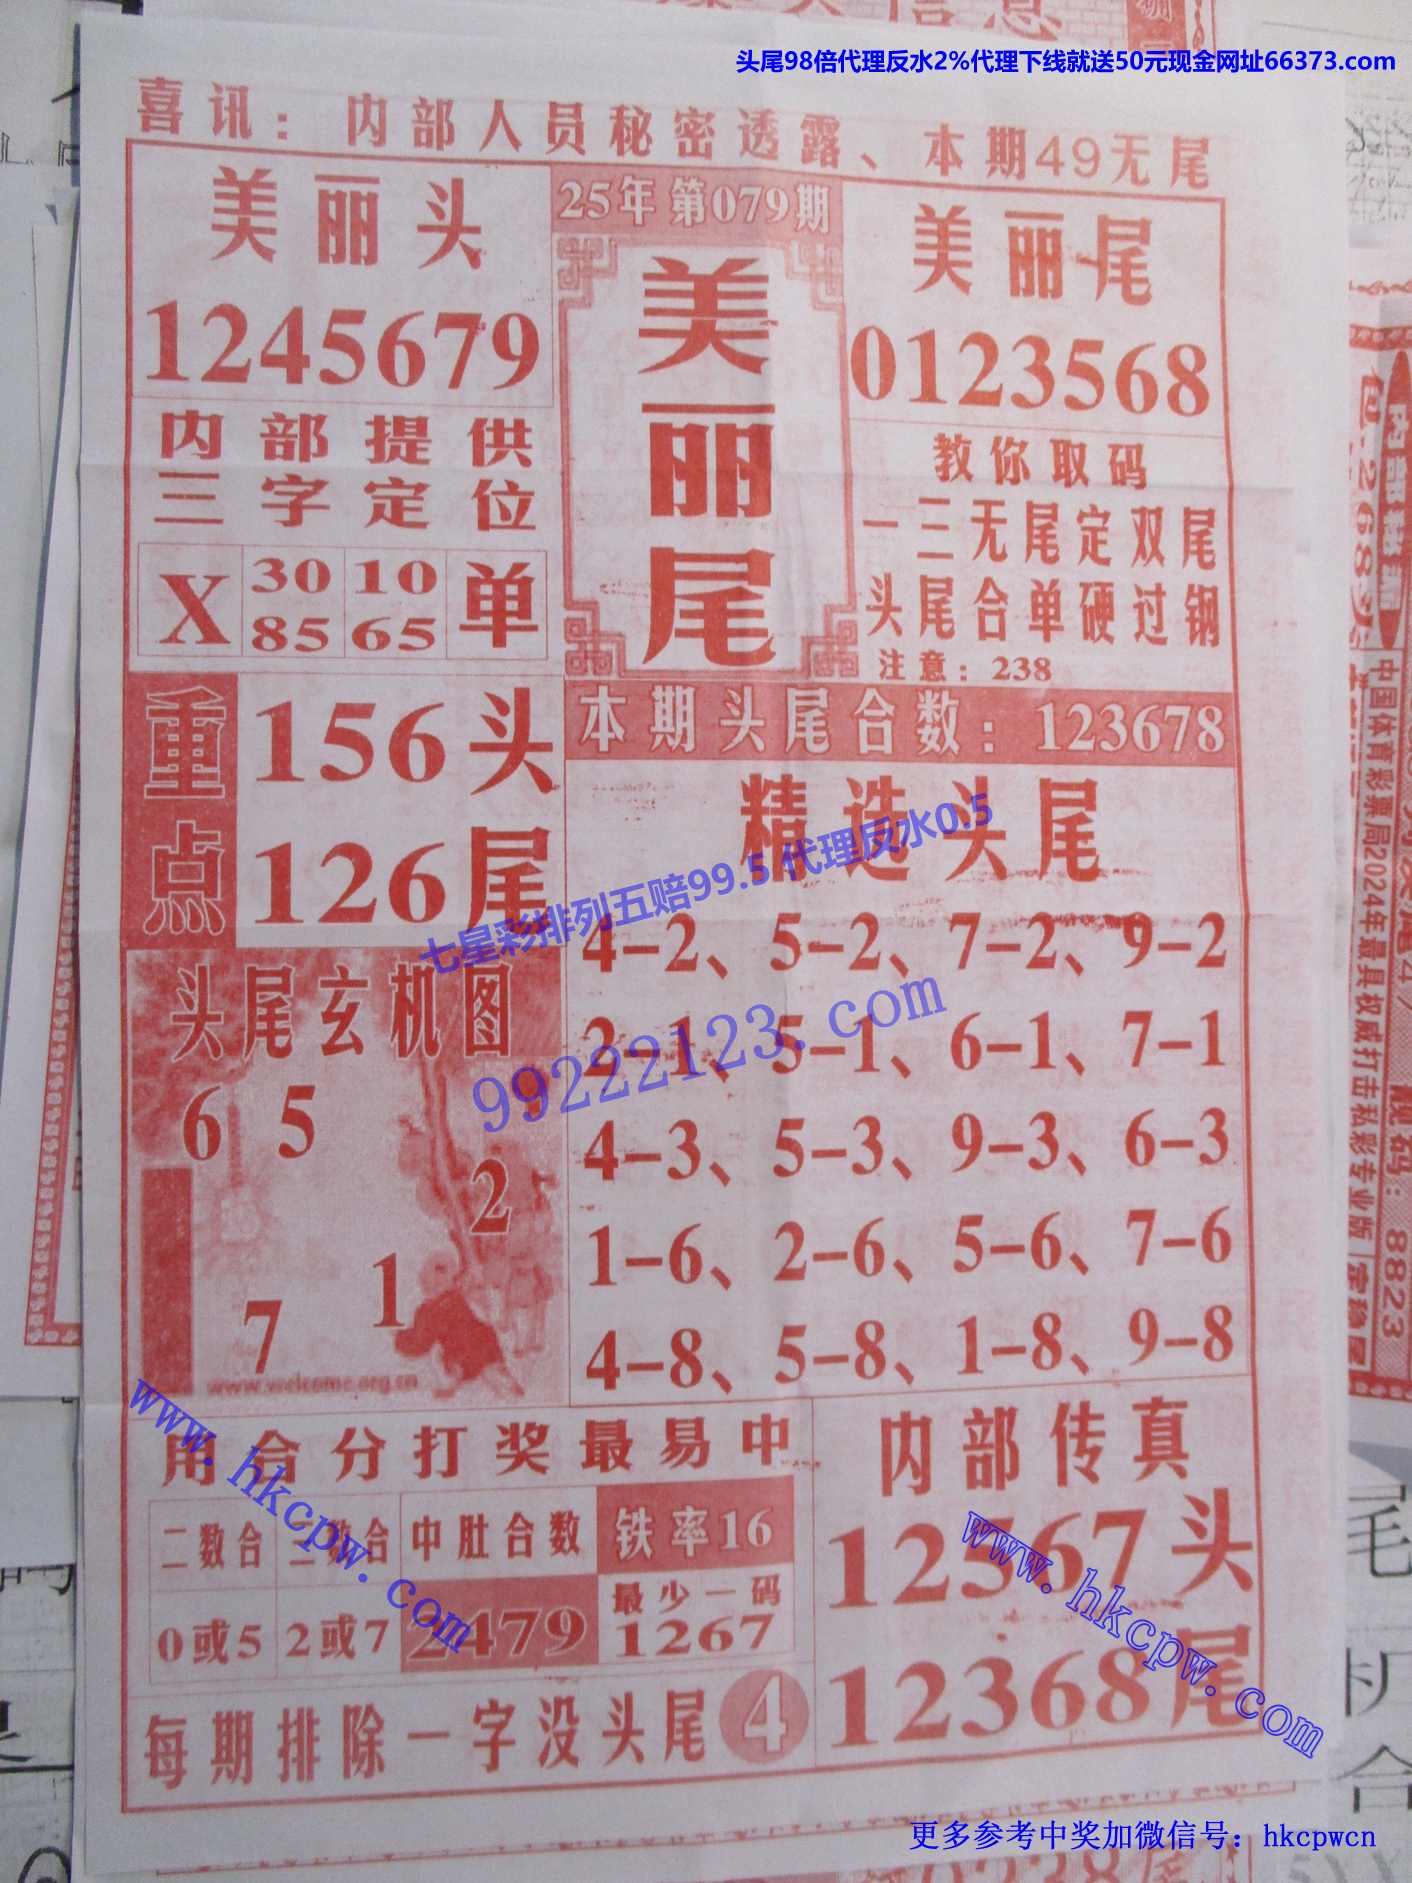 头尾98倍代理反水2%代理下线就送50元现金网址66373.com
喜讯：内部人员秘密透露、本期49无尾
美丽头
1245679
25年第079期
美丽尾
美丽尾
0123568
内部提供
三字定位
X 30 10 单
85 65
教你取码
一三无尾定双尾
头尾合单硬过钢
注意：238
重点
156头
126尾
本期头尾合数：123678
精选头尾
4-2、5-2、7-2、9-2
2-1、5-1、6-1、7-1
4-3、5-3、9-3、6-3
1-6、2-6、5-6、7-6
4-8、5-8、1-8、9-8
七星彩排列五赔99.5代理反水0.5
99222123.com
头尾玄机图
6 5 9
2
1
7
www.welcome.org.cn
用合分打奖最易中
二数合 三数合 中肚合数 铁率16
0或5 2或7 2479 最少一码
1267
内部传真
12567头
12368尾
每期排除一字没头尾 4
www.hkcpw.com
www.hkcpw.com
更多参考中奖加微信号：hkcpwcn
中国体育彩票局2024年最具权威打击私彩专业版
靓码：8823